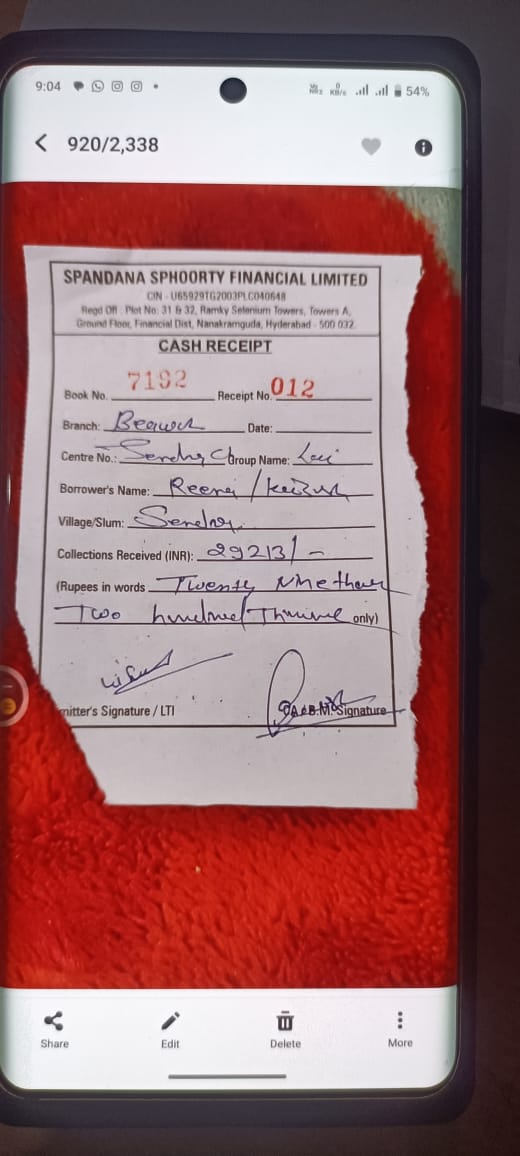 9:04 54%
920/2,338
SPANDANA SPHOORTY FINANCIAL LIMITED
CIN - U65929TG2003PLC040648
Regd Off : Plot No: 31 & 32, Ramky Selenium Towers, Towers A,
Ground Floor, Financial Dist, Nanakramguda, Hyderabad - 500 032.
CASH RECEIPT
Book No. 7192 Receipt No. 012
Branch: Date:
Centre No.: Group Name:
Borrower's Name: Reena /
Village/Slum: Sendra
Collections Received (INR): 29213/-
(Rupees in words Twenty Nine
Two hundred only)
mitter's Signature / LTI Signature
Share Edit Delete More